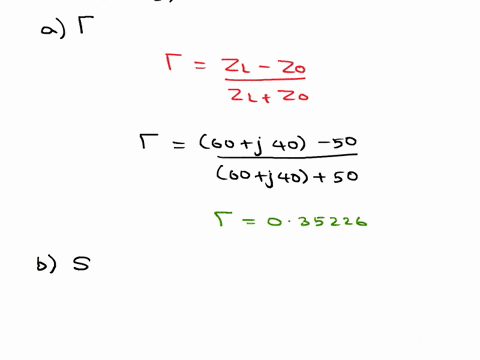 a) Γ
Γ = ZL - Z0 / ZL + Z0
Γ = (60+j 40) - 50 / (60+j40) + 50
Γ = 0.35226
b) S